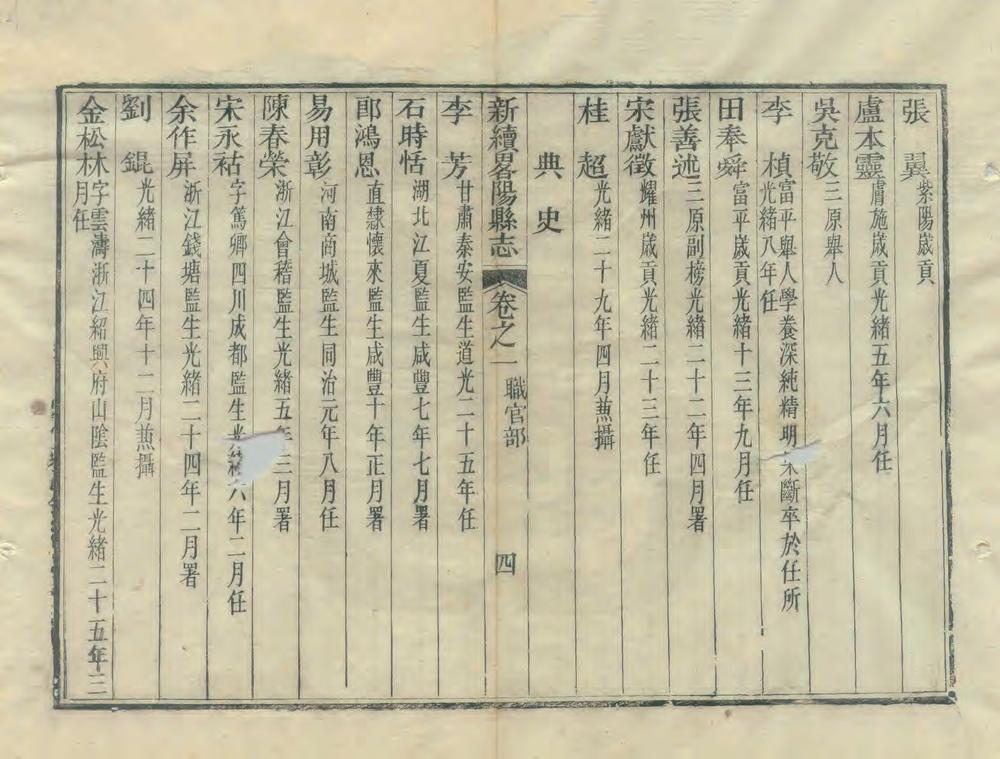 張翼紫陽歲貢
盧本靈膚施歲貢光緒五年六月任
吳克敬三原舉人
李楨富平舉人學養深純精明 斷卒於任所
光緒八年任
田奉舜富平歲貢光緒十三年九月任
張善述三原副榜光緒二十二年四月署
宋獻徵耀州歲貢光緒二十三年任
桂超光緒二十九年四月兼攝
典史
新續畧陽縣志 卷之一 職官部 四
李芳甘肅泰安監生道光二十五年任
石時恬湖北江夏監生咸豐七年七月署
郎鴻恩直隸懷來監生咸豐十年正月署
易用彰河南商城監生同治元年八月任
陳春榮浙江會稽監生光緒五年三月署
宋永祜字篤卿四川成都監生光緒六年二月任
余作屏浙江錢塘監生光緒二十四年二月署
劉錕光緒二十四年十二月兼攝
金松林字雲濤浙江紹興府山陰監生光緒二十五年三
月任